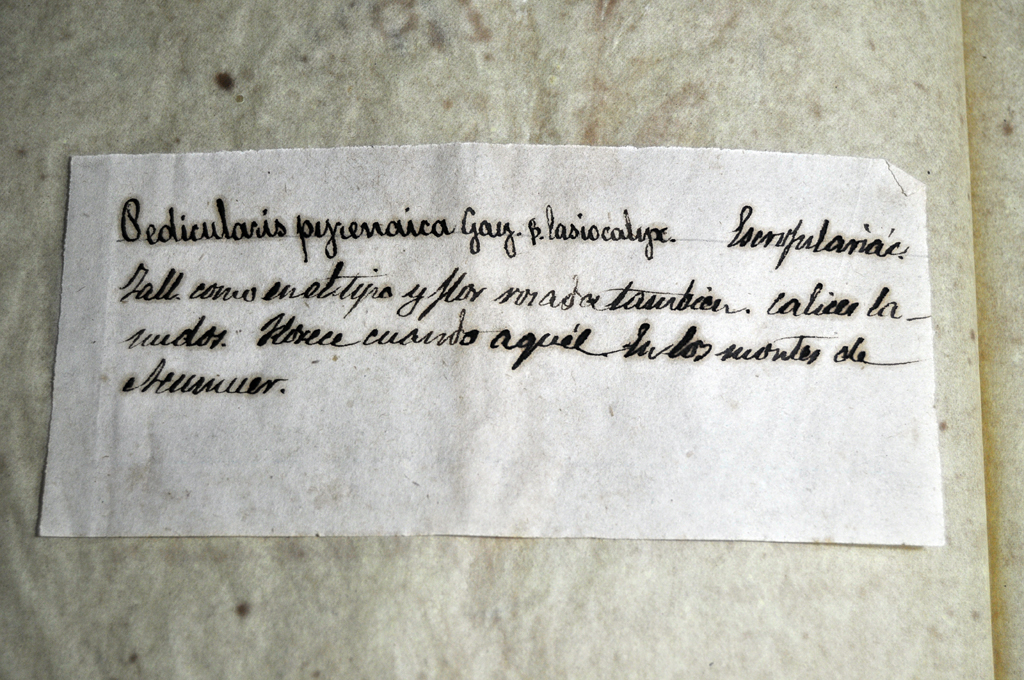 Pedicularis pyrenaica Gay. β. lasiocalyx. Escrofulariác.
Tall. como en el tipo y flor rosada tambien. Calices la-
nudos. Florece cuando aquél En los montes de
Acumuer.